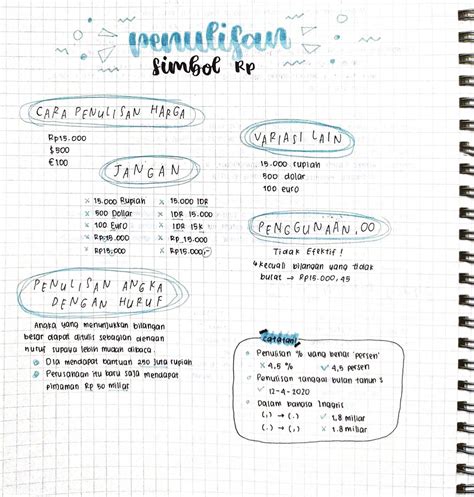 penulisan
simbol Rp
CARA PENULISAN HARGA
Rp15.000
$500
€100
JANGAN
× 15.000 Rupiah
× 500 Dollar
× 100 Euro
× Rp.15.000
× Rp15.000
× 15.000 IDR
× IDR 15.000
× IDR 15K
× Rp_15.000
× Rp15.000,-
PENULISAN ANGKA
DENGAN HURUF
Angka yang menunjukkan bilangan
besar dapat ditulis sebagian dengan
huruf supaya lebih mudah dibaca.
Dia mendapat bantuan 250 juta rupiah
Perusahaan itu baru saja mendapat
pinjaman Rp 50 miliar
VARIASI LAIN
15.000 rupiah
500 dolar
100 euro
PENGGUNAAN ,00
Tidak Efektif!
kecuali bilangan yang tidak
bulat → Rp15.000,45
catatan
Penulisan % yang benar 'persen'
× 4,5 % ✓ 4,5 persen
Penulisan tanggal bulan tahun
✓ 12-4-2020
Dalam bahasa Inggris
(,) → (.) ✓ 1,8 miliar
(.) → (,) × 1.8 miliar